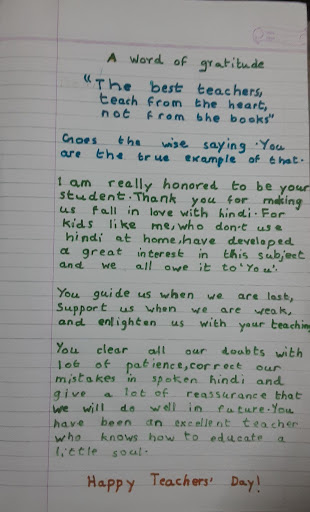 A word of gratitude
"The best teachers,
teach from the heart,
not from the books"
Goes the wise saying. You
are the true example of that.
I am really honored to be your
student. Thank you for making
us fall in love with hindi. For
kids like me, who don't use
hindi at home, have developed
a great interest in this subject
and we all owe it to 'You'.
You guide us when we are lost,
Support us when we are weak,
and enlighten us with your teaching
You clear all our doubts with
lot of patience, correct our
mistakes in spoken hindi and
give a lot of reassurance that
we will do well in future. You
have been an excellent teacher
who knows how to educate a
little soul.
Happy Teachers' Day!